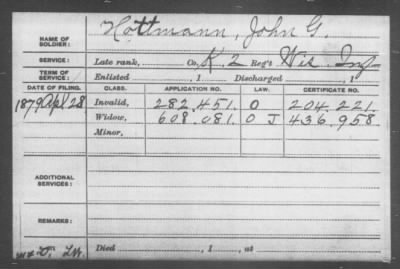 NAME OF SOLDIER: Hottmann, John G.
SERVICE: Late rank, Co. K 2 Reg't Wis. Inf
TERM OF SERVICE: Enlisted , 1 Discharged , 1
DATE OF FILING. CLASS. APPLICATION NO. LAW. CERTIFICATE NO.
1879 Apl 28 Invalid, 282.451. O 204.221.
Widow, 608.081. O J 436.958
Minor,
ADDITIONAL SERVICES:
REMARKS:
Died , 1 , at